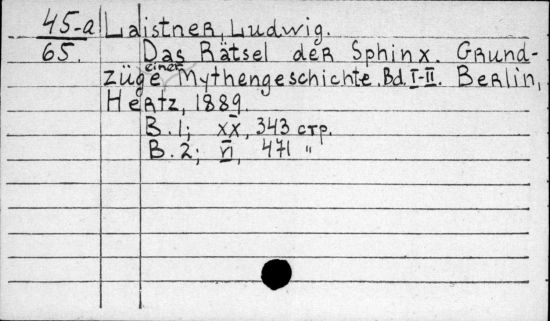 45-a Laistner, Ludwig.
65. Das Rätsel der Sphinx. Grund-
züge einer Mythengeschichte. Bd. I-II. Berlin,
Hertz, 1889.
B. 1; XX, 343 стр.
B. 2; VI, 471 "